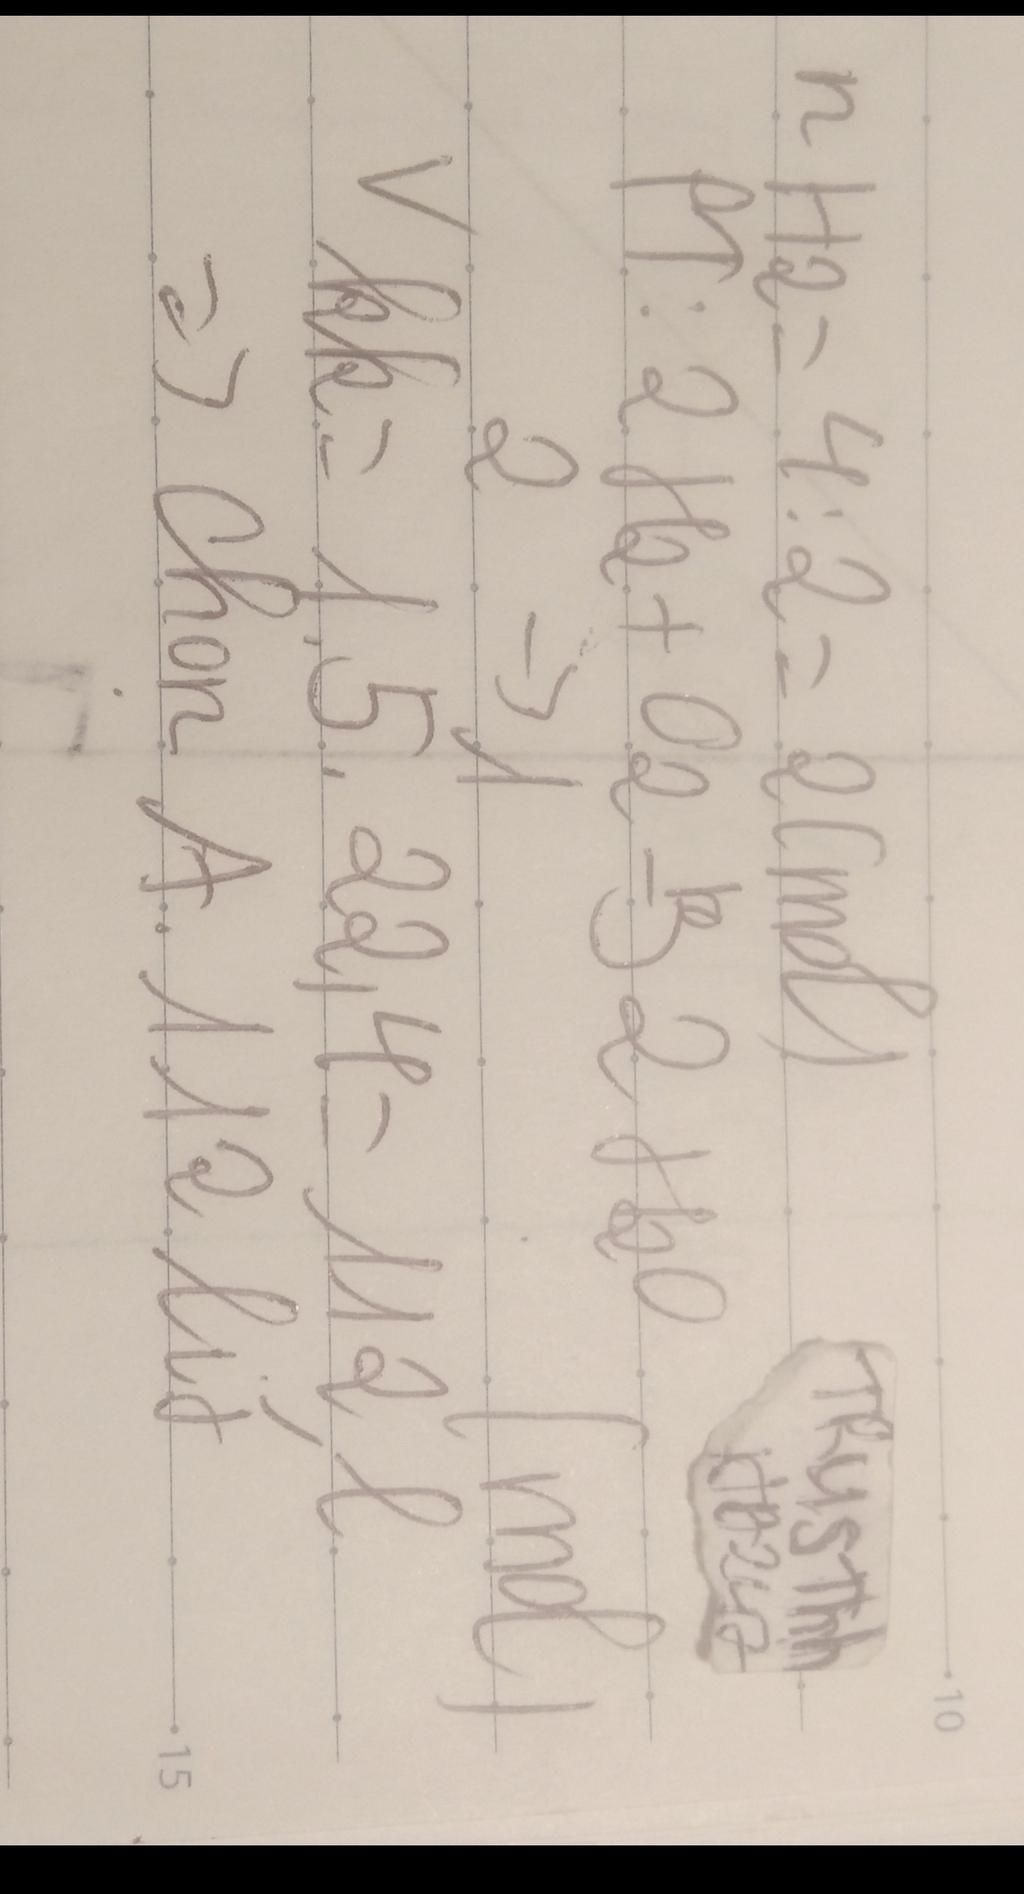 n H2 = 4:2 = 2(mol)
PT: 2H2 + O2 -> 2H2O
2 -> 1 (mol)
Vkk = 1.5.22,4 = 112 l
=> Chọn A. 112 lít
10
15